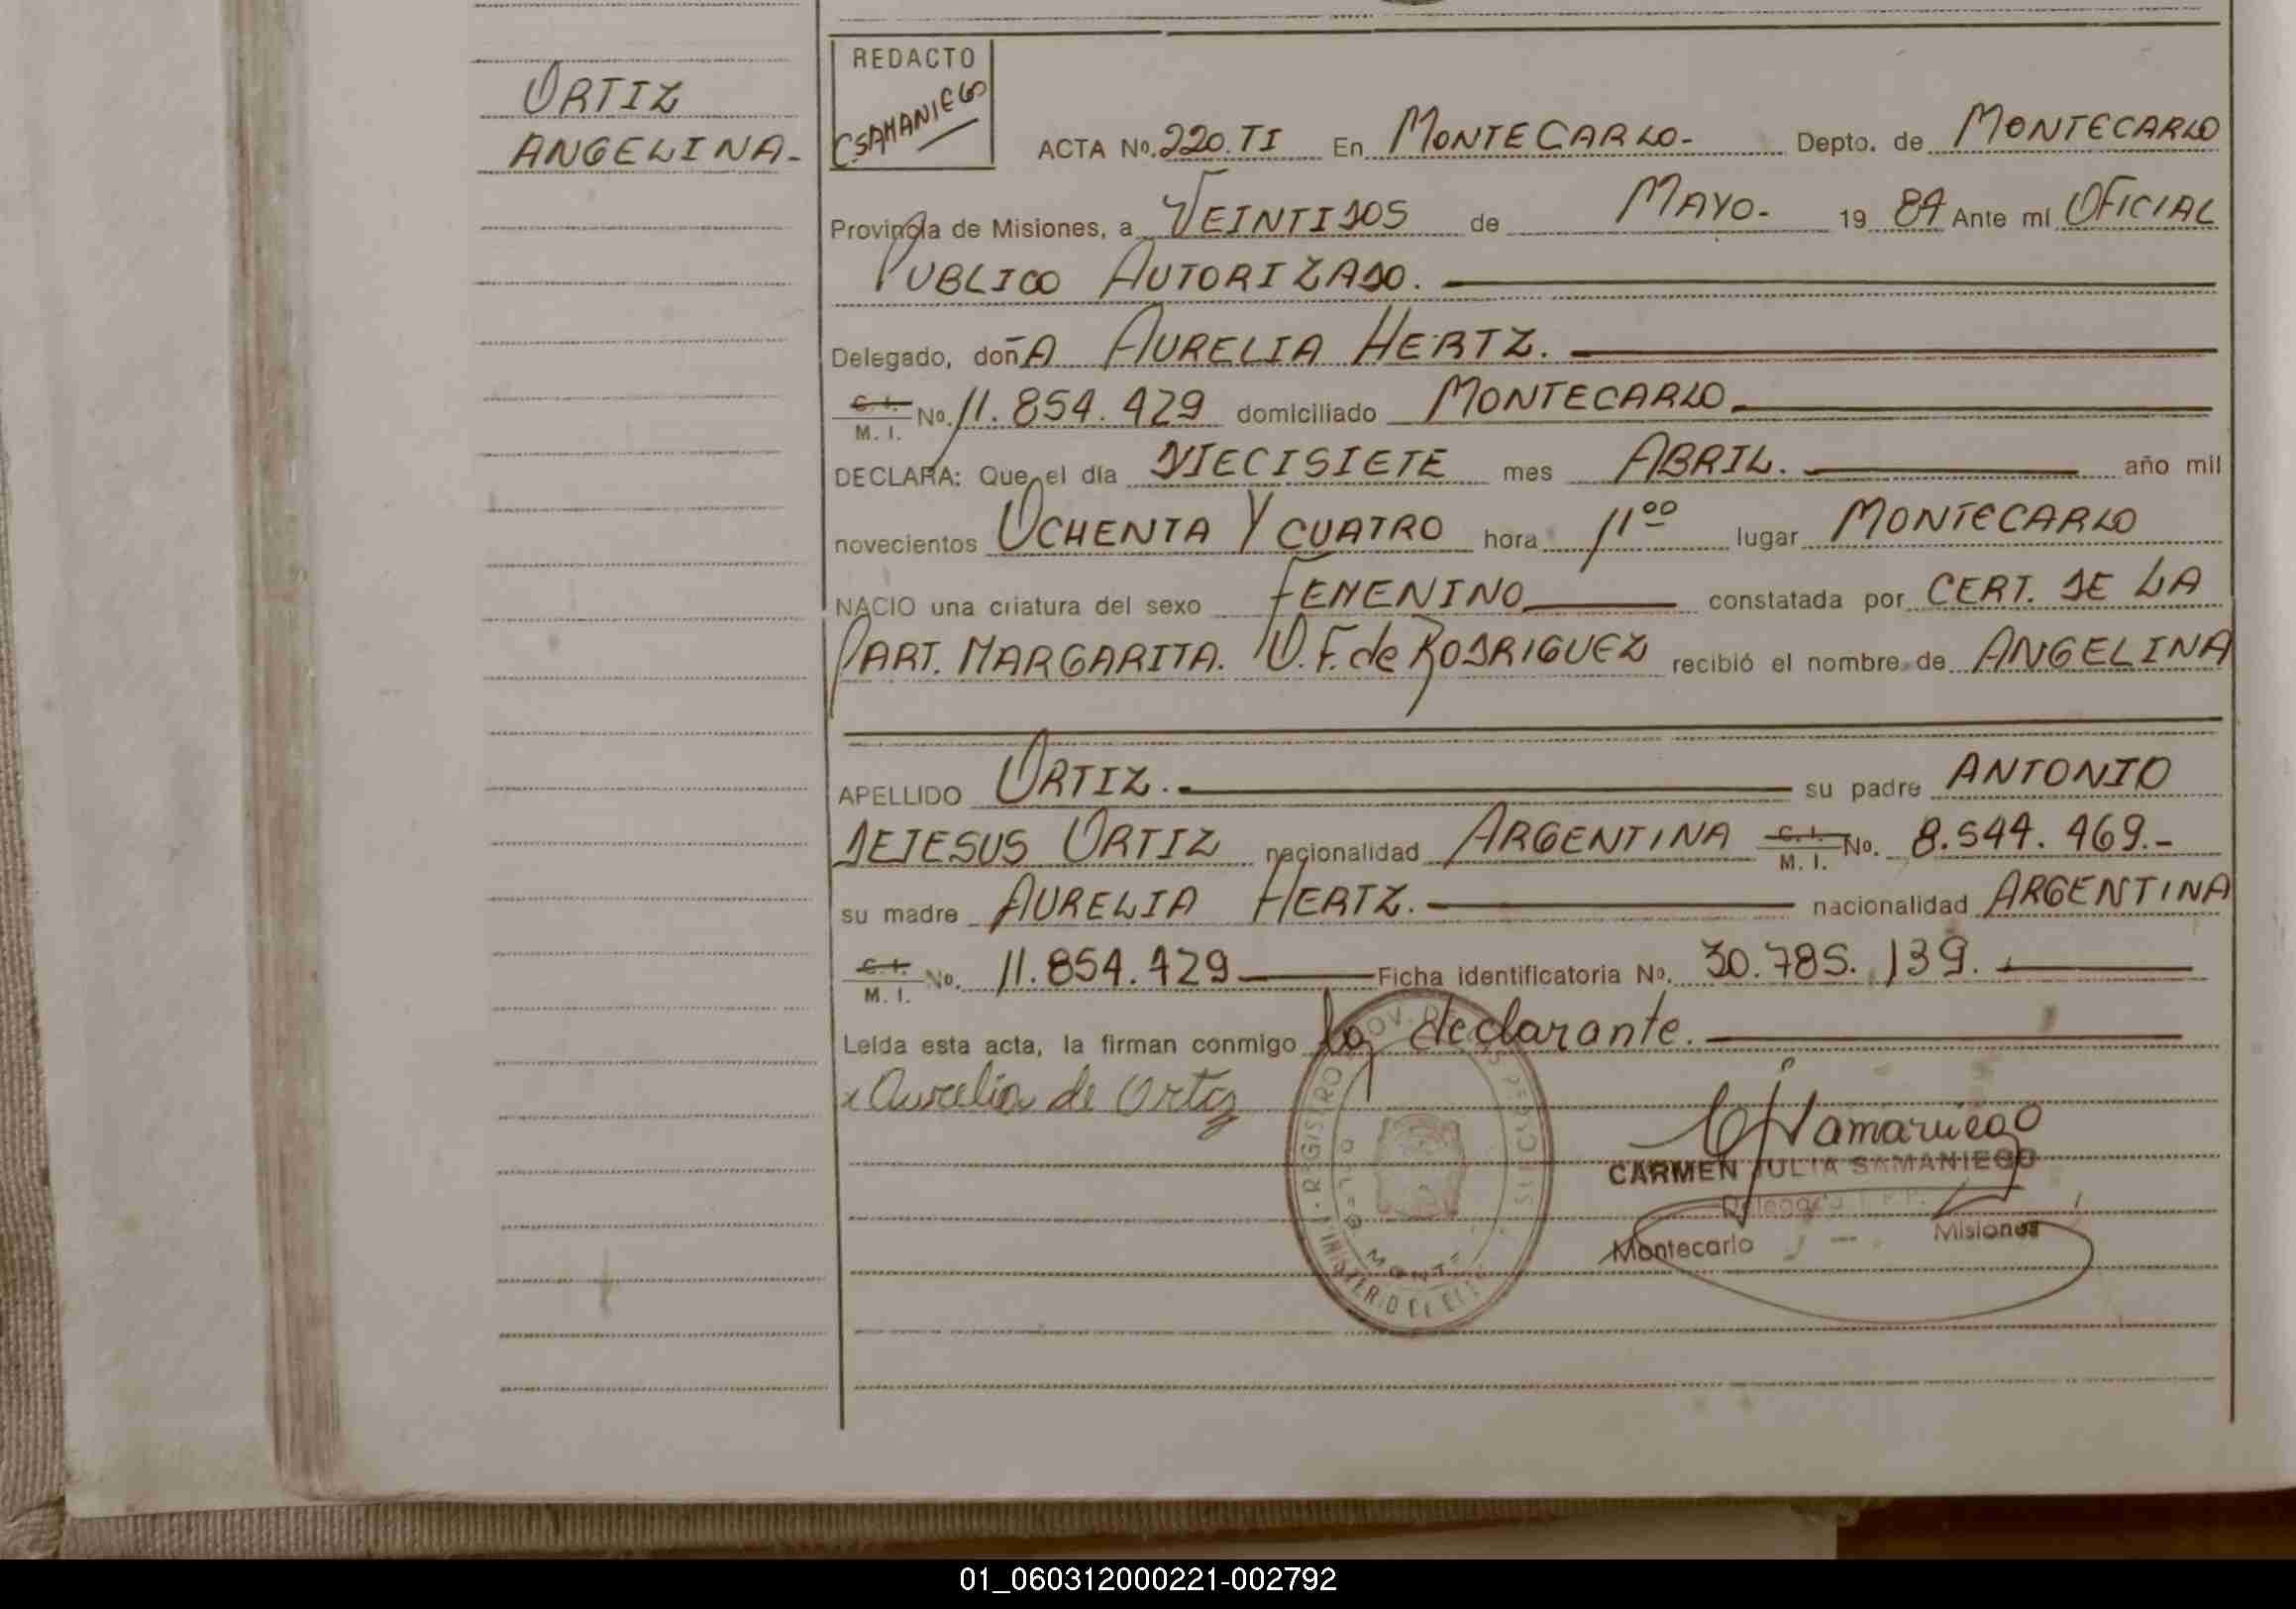 ORTIZ
ANGELINA-
REDACTO
CSAMANIEGO
ACTA No. 220. TI En MONTECARLO.- Depto. de MONTECARLO
Provincia de Misiones, a VEINTIDOS de MAYO.- 19 84 Ante mí OFICIAL
PUBLICO AUTORIZADO.
Delegado, doñA AURELIA HERTZ.
C. I.
M. I. No. 11.854.429 domiciliado MONTECARLO
DECLARA: Que el día DIECISIETE mes ABRIL. año mil
novecientos OCHENTA Y CUATRO hora 11⁰⁰ lugar MONTECARLO
NACIO una criatura del sexo FEMENINO constatada por CERT. DE LA
PART. MARGARITA. F. de RODRIGUEZ recibió el nombre de ANGELINA
APELLIDO ORTIZ. su padre ANTONIO
DEJESUS ORTIZ nacionalidad ARGENTINA C. I.
M. I. No. 8.544.469.-
su madre AURELIA HERTZ. nacionalidad ARGENTINA
C. I.
M. I. No. 11.854.429 Ficha identificatoria No. 30.785.139.
Leída esta acta, la firman conmigo la declarante.
x Aurelia de Ortiz
CJSamaniego
CARMEN JULIA SAMANIEGO
Delegada
Montecarlo Misiones
REGISTRO
MINISTERIO
MONTE
01_060312000221-002792